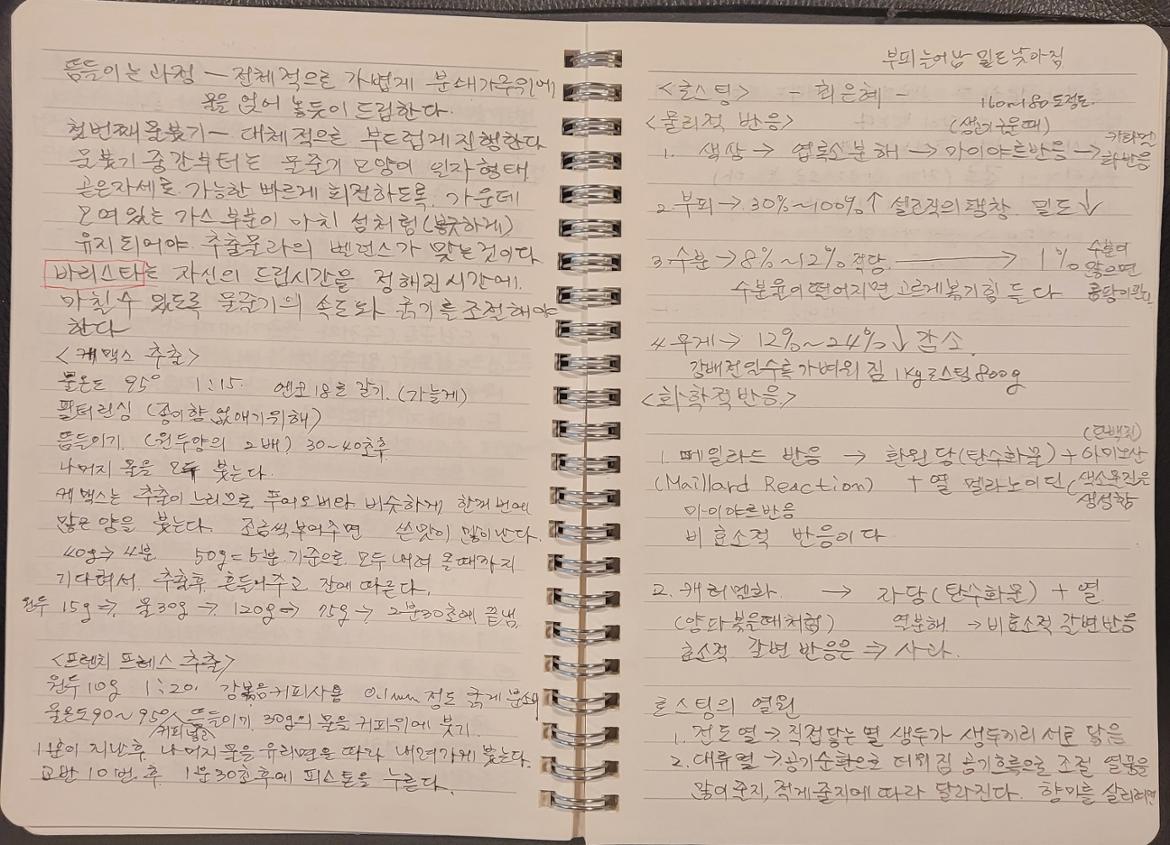 뜸들이는 과정 - 전체적으로 가볍게 분쇄가루위에
물을 얹어 놓듯이 드립한다.
첫번째물붓기 - 대체적으로 부드럽게진행한다
물붓기 중간부터는 물줄기 모양이 일자형태
곧은자세로 가능한 빠르게 회전하도록. 가운데
모여있는 가스부분이 마치 섬처럼(봉긋하게)
유지되어야. 추출물과의 밸런스가 맞는것이다
바리스타는 자신의 드립시간을 정해진시간에.
마칠수 있도록 물줄기의 속도와 굵기를 조절해야
한다
<케멕스 추출>
물온도 95° 1:15. 엔코18로 갈기.(가늘게)
필터린싱 (종이향없애기위해)
뜸들이기. (원두양의 2배) 30~40초후
나머지 물을 모두 붓는다.
케멕스는 추출이느리므로, 푸어오버와 비슷하게 한꺼번에
많은양을 붓는다. 조금씩부어주면 쓴맛이 많이난다.
40g→4분 50g=5분 기준으로 모두내려 올때까지
기다려서. 추출후 흔들어주고 잔에 따른다.
원두 15g⇒, 물30g→ 120g⇒ 75g→ 2분30초에 끝냄
<프렌치 프레스 추출>
원두10g 1:20. 강볶음커피사용 0.1mm 정도 굵게분쇄
물온도90~95° 뜸들이기 30g의 물을 커피위에 붓기.
커피넣고
1분이 지난후 나머지물을 유리면을 따라 내려가게붓는다.
교반 10번.후 1분30초후에 피스톤을 누른다.
부피늘어남 밀도낮아짐
<로스팅> - 최은혜 -
160~180도정도.
<물리적 반응> (생두구운때)
1. 색상 → 엽록소분해 → 마이야르반응 → 카라멜화반응
2. 부피→ 30%~100%↑ 셀조직의팽창. 밀도↓
3.수분→8%~12%적당. → 1% 수분이 많으면
수분율이떨어지면고르게볶기힘든다
4.무게→ 12%~24%↓감소.
강배전일수록가벼워짐 1Kg로스팅800g
<화학적반응.>
1. 메일라드 반응 → 환원당(탄수화물)+아미노산 (단백질)
(Maillard Reaction) +열 멜라노이딘(색소물질은 생성함
마이야르반응
비효소적 반응이다
2. 캐러멜화. → 자당(탄수화물) + 열
(양파볶은때처럼) 열분해 →비효소적 갈변반응
효소적 갈변 반응은 ⇒ 사과.
로스팅의 열원
1. 전도열→직접닿는열 생두가 생두끼리서로 닿음
2. 대류열→공기순환으로 더워짐 공기흐름으로 조절 열풍을
많이준지,적게줄지에따라 달라진다. 향미를 살리려면